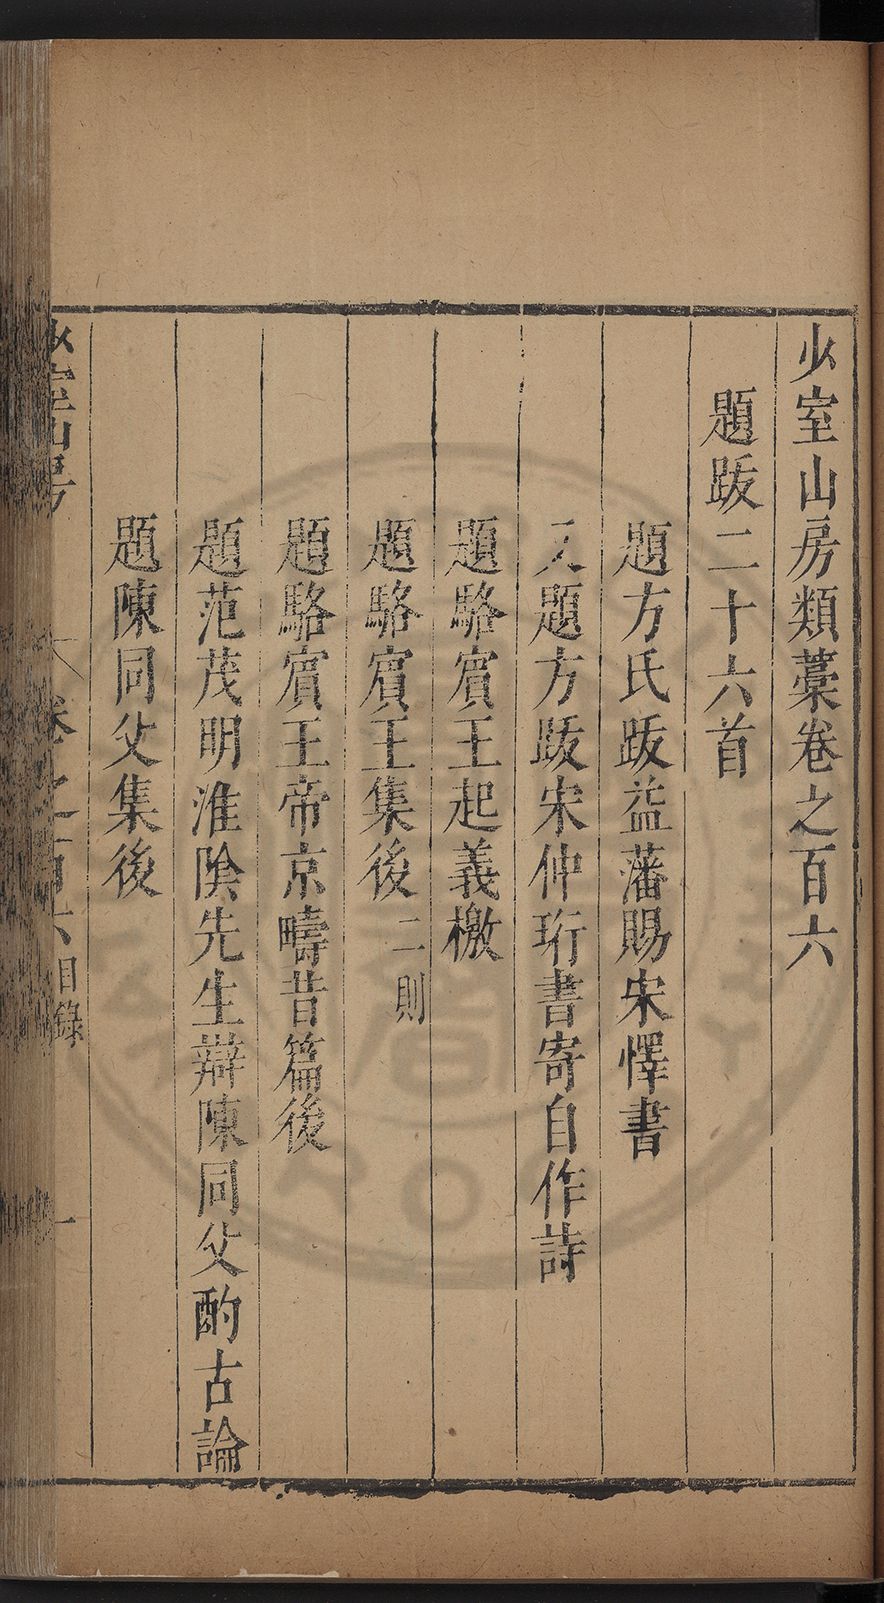 少室山房類藁卷之百六
題跋二十六首
題方氏跋益藩賜宋懌書
又題方跋宋仲珩書寄自作詩
題駱賓王起義檄
題駱賓王集後二則
題駱賓王帝京疇昔篇後
題范茂明淮陰先生辯陳同父酌古論
題陳同父集後
少室山房 卷之百六目錄 一